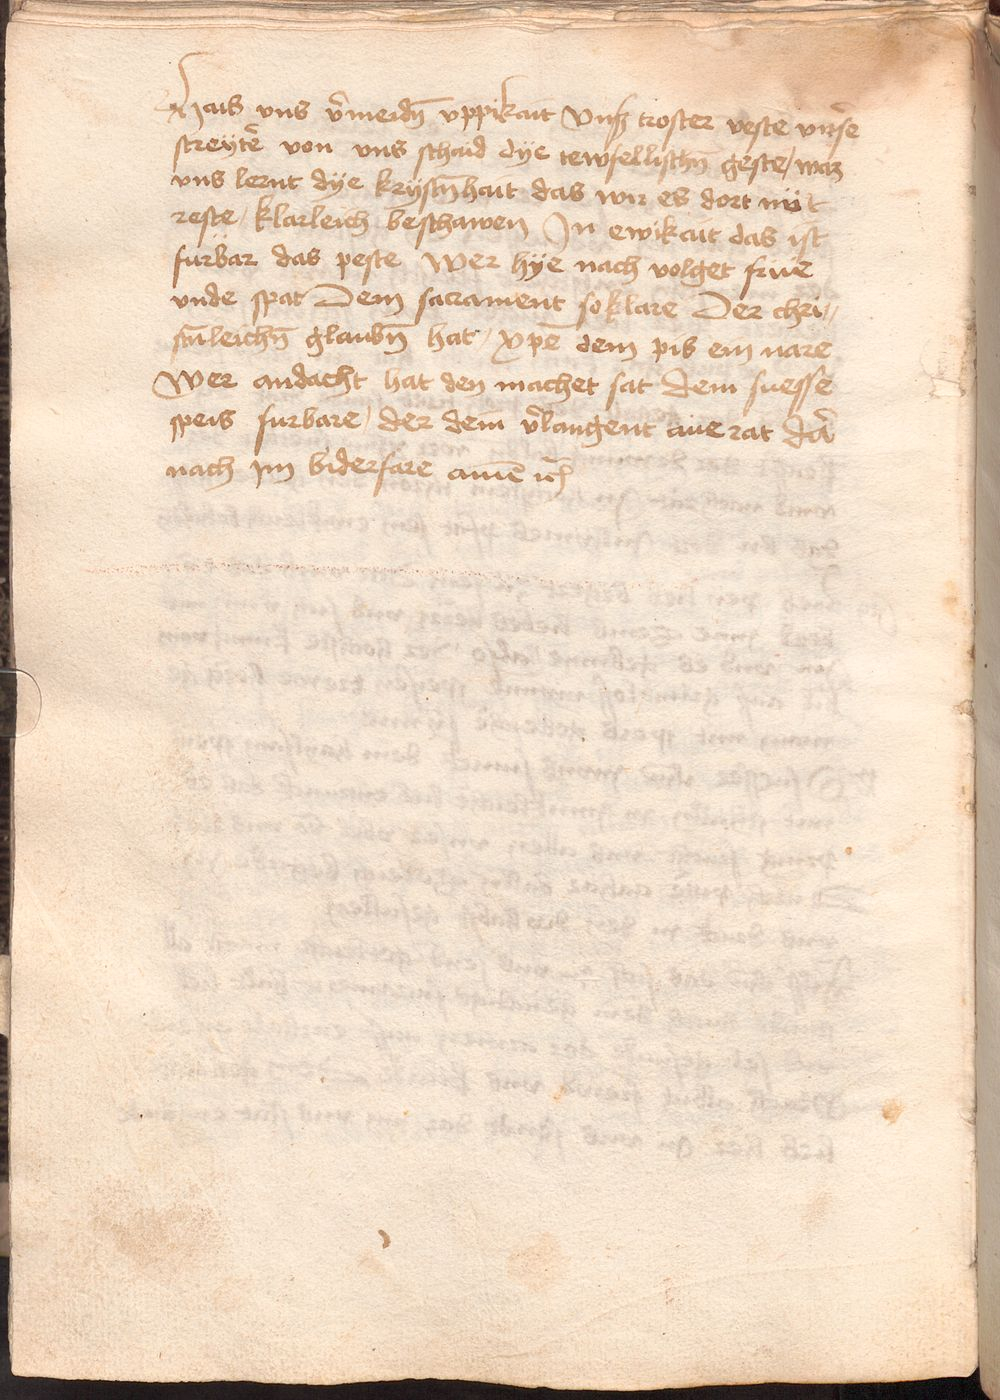 Hais vns v̄meidn̄ vppikait Vnsz troster veste vnsē
streytē von vns schaid dye tewfellischn̄ geste / waz
vns lernt dye krystn̄hait das wir es dort mit
reste / klarleich beschawen In ewikait das ist
furbar das peste Wer hye nach volget frue
vnde spat Dem sacrament so klare Der chri//
stn̄leichn̄ glaubn̄ hat / xpē dem pis ein nare
Wer andacht hat den machet sat dein suesse
speis furbare / der dein v̄langent aue rat
nach im biderfare amē